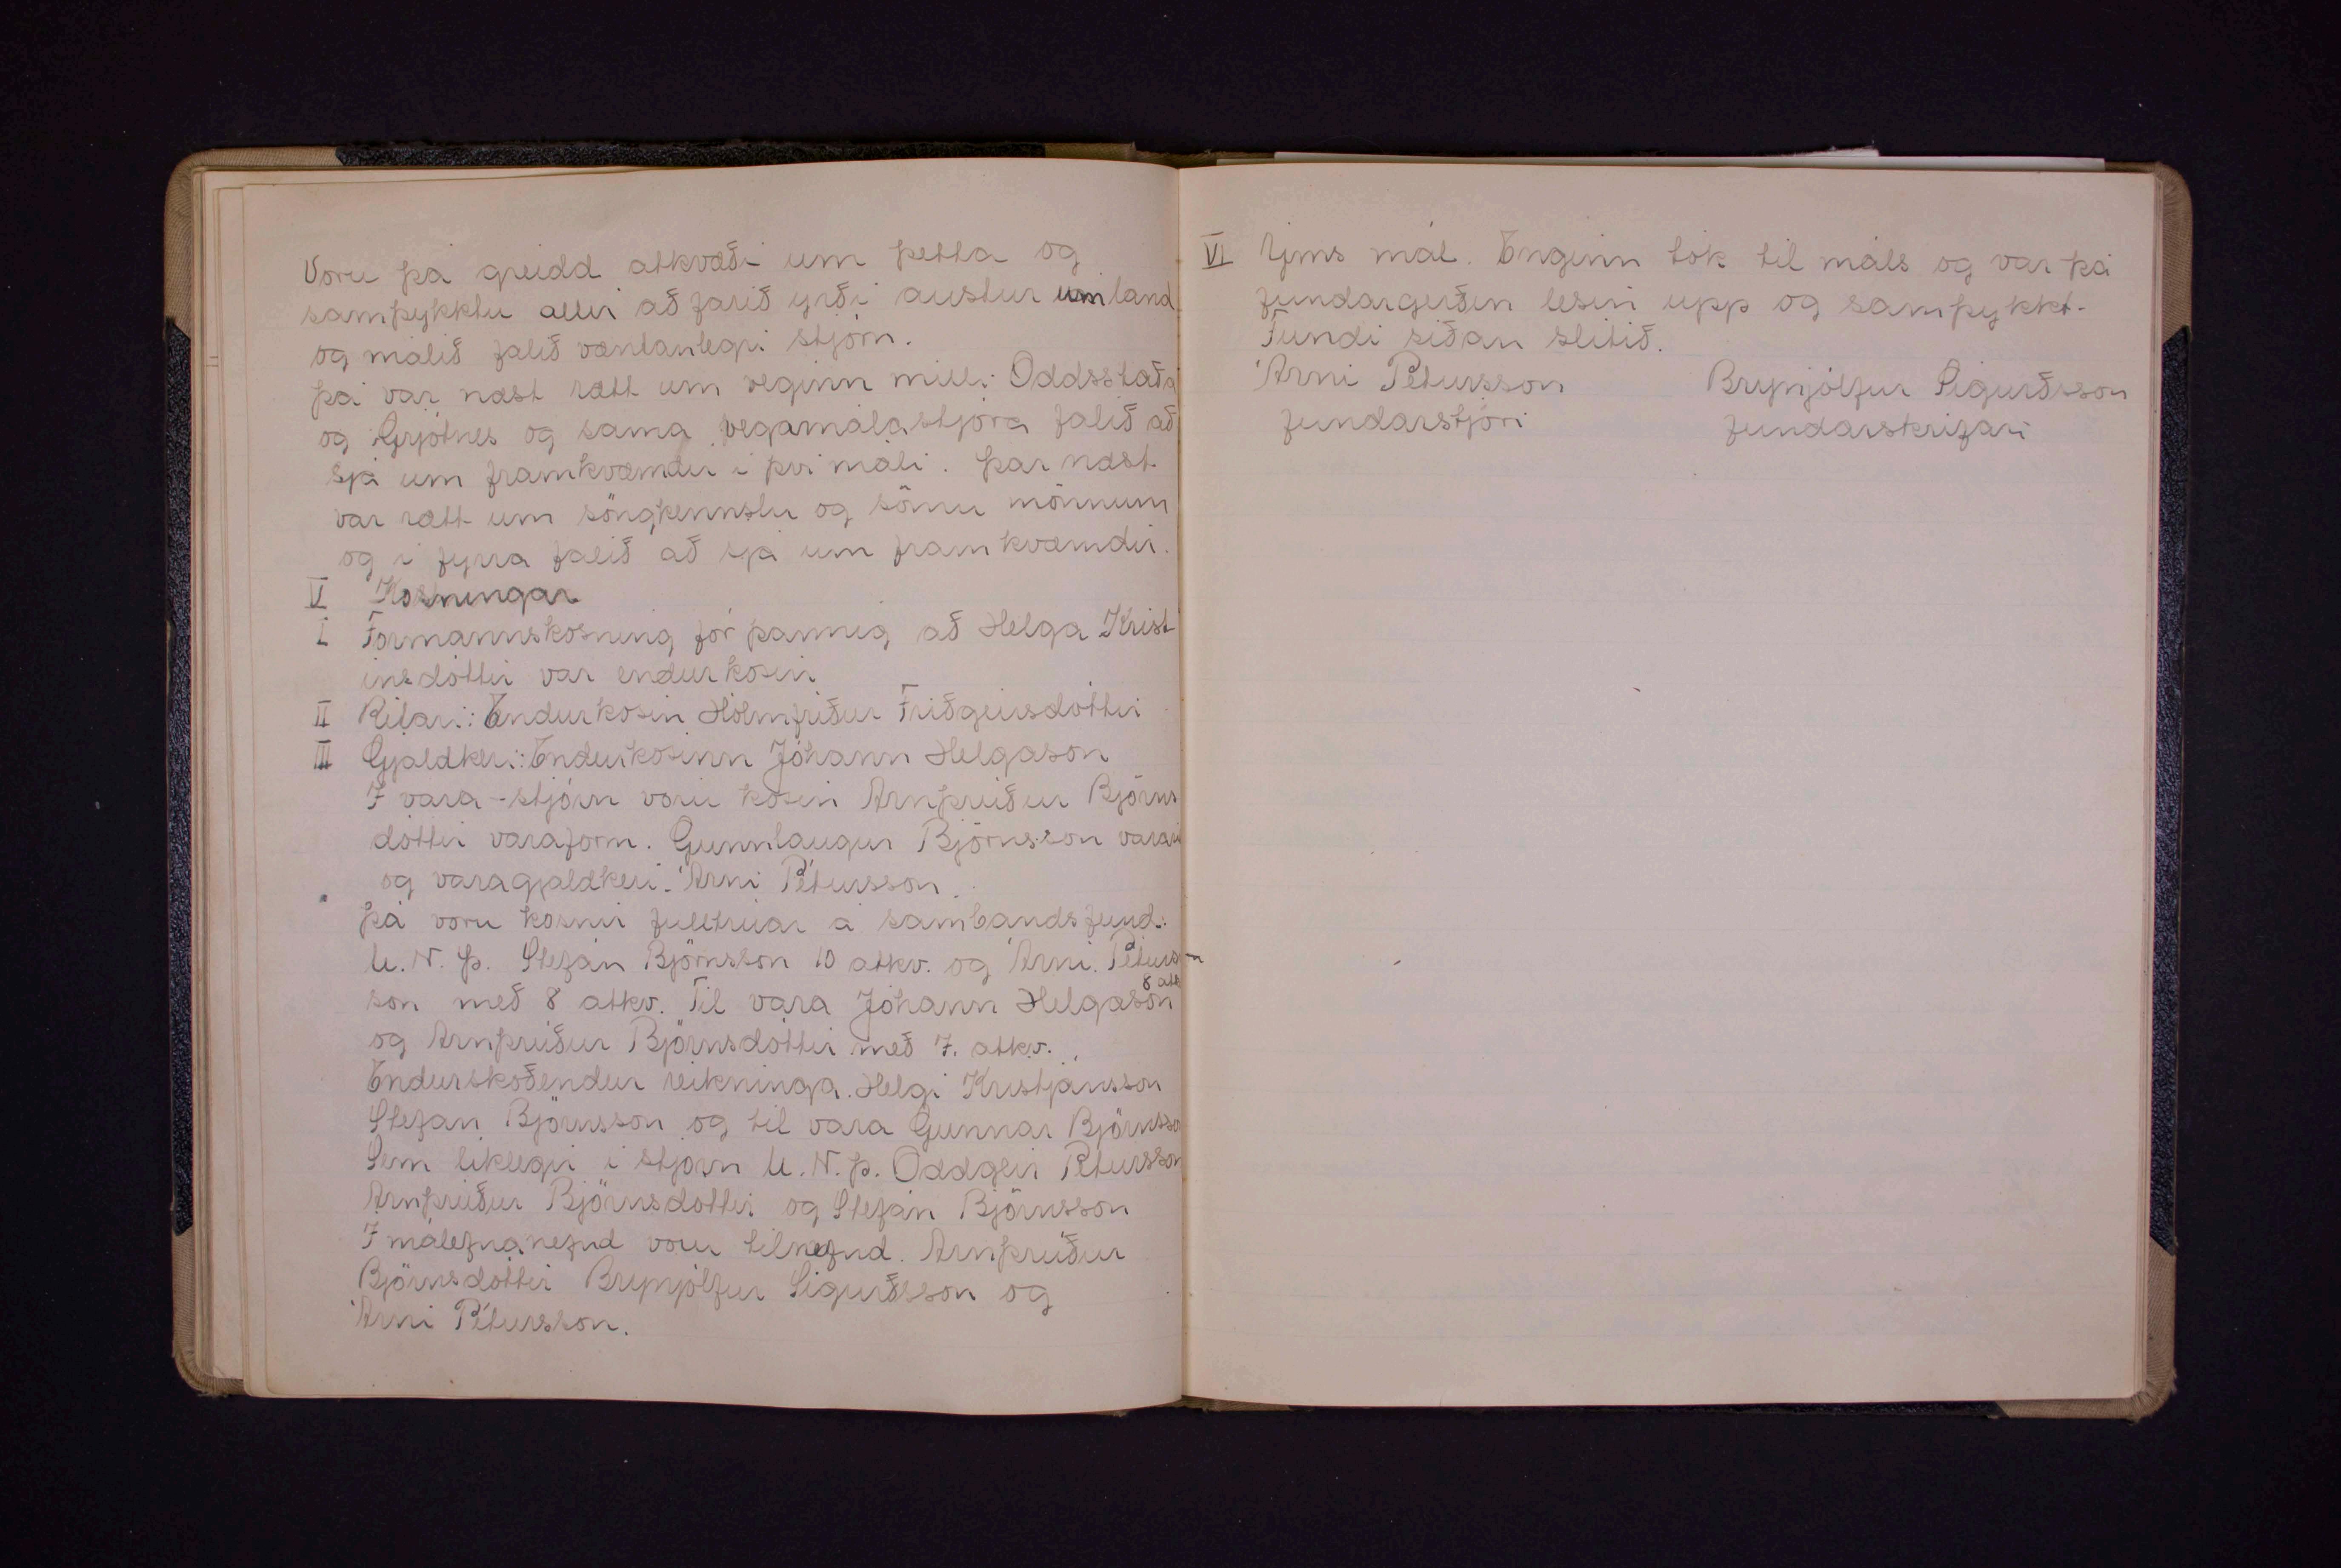 Voru þá greidd atkvæði um þetta og
samþykktu allir að farið yrði austur um land
og málið falið væntanlegri stjórn.
Þá var næst rætt um veginn milli Oddsstaða
og Grjótnes og sama vegamálastjóra falið að
sjá um framkvæmdir í því máli. Þar næst
var rætt um söngkennslu og sömu mönnum
og í fyrra falið að sjá um framkvæmdir.
V Kosningar
I Formannskosning fór þannig að Helga Krist
insdóttir var endurkosin
II Ritari: Endurkosin Hólmfriður Friðgeirsdóttir
III Gjaldkeri: Endurkosinn Jóhann Helgason
Í vara-stjórn voru kosin Arnþrúður Björns
dóttir varaform. Gunnlaugur Björnsson varari
og varagjaldkeri. Árni Pétursson.
Þá voru kosnir fulltrúar á sambandsfund.
U.N.Þ. Stefán Björnsson 10 atkv. og Árni Péturs-
son með 8 atkv. Til vara Jóhann Helgason 8 atk
og Arnþrúður Björnsdóttir með 7. atkv.
Endurskoðendur reikninga. Helgi Kristjánsson
Stefán Björnsson og til vara Gunnar Björnsson
Sem líklegir í stjórn U.N.Þ. Oddgeir Pétursson
Arnþrúður Björnsdóttir og Stefán Björnsson
Í málefnanefnd voru tilnefnd. Arnþrúður
Björnsdóttir Brynjólfur Sigurðsson og
Árni Pétursson.
VI Ýms mál. Enginn tók til máls og var þá
fundargerðin lesin upp og samþykkt.
Fundi síðan slitið.
Árni Pétursson Brynjólfur Sigurðsson
fundarstjóri fundarskrifari